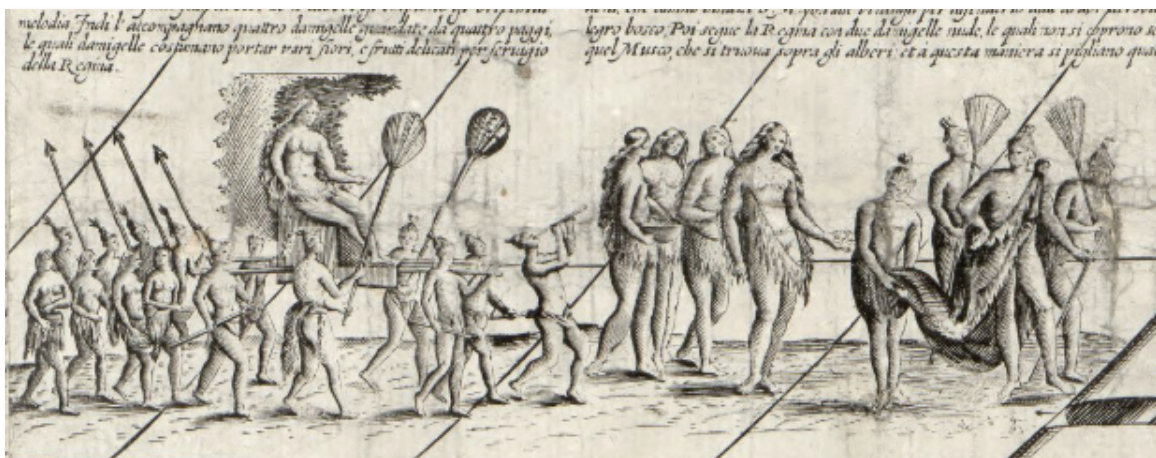 melodia, Indi l'accompagnano quattro damigelle guardate da quattro paggi,
le quali damigelle costumano portar vari fiori, e frutti delicati per seruigio
della Regina.
legro bosco. Poi segue la Regina con due damigelle nude, le quali non si coprono se
quel Musco, che si truoua sopra gli alberi, et à questa maniera si pigliano qua